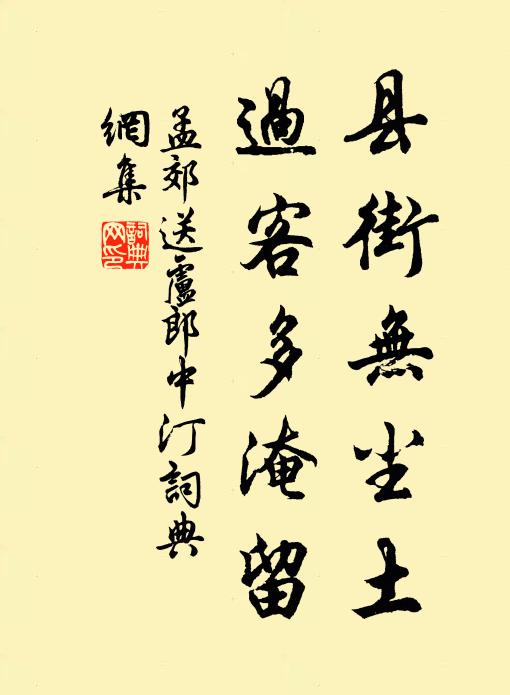 县街無尘土
過客多淹留
孟郊送盧郎中汀詞典
網集
詞典
网印